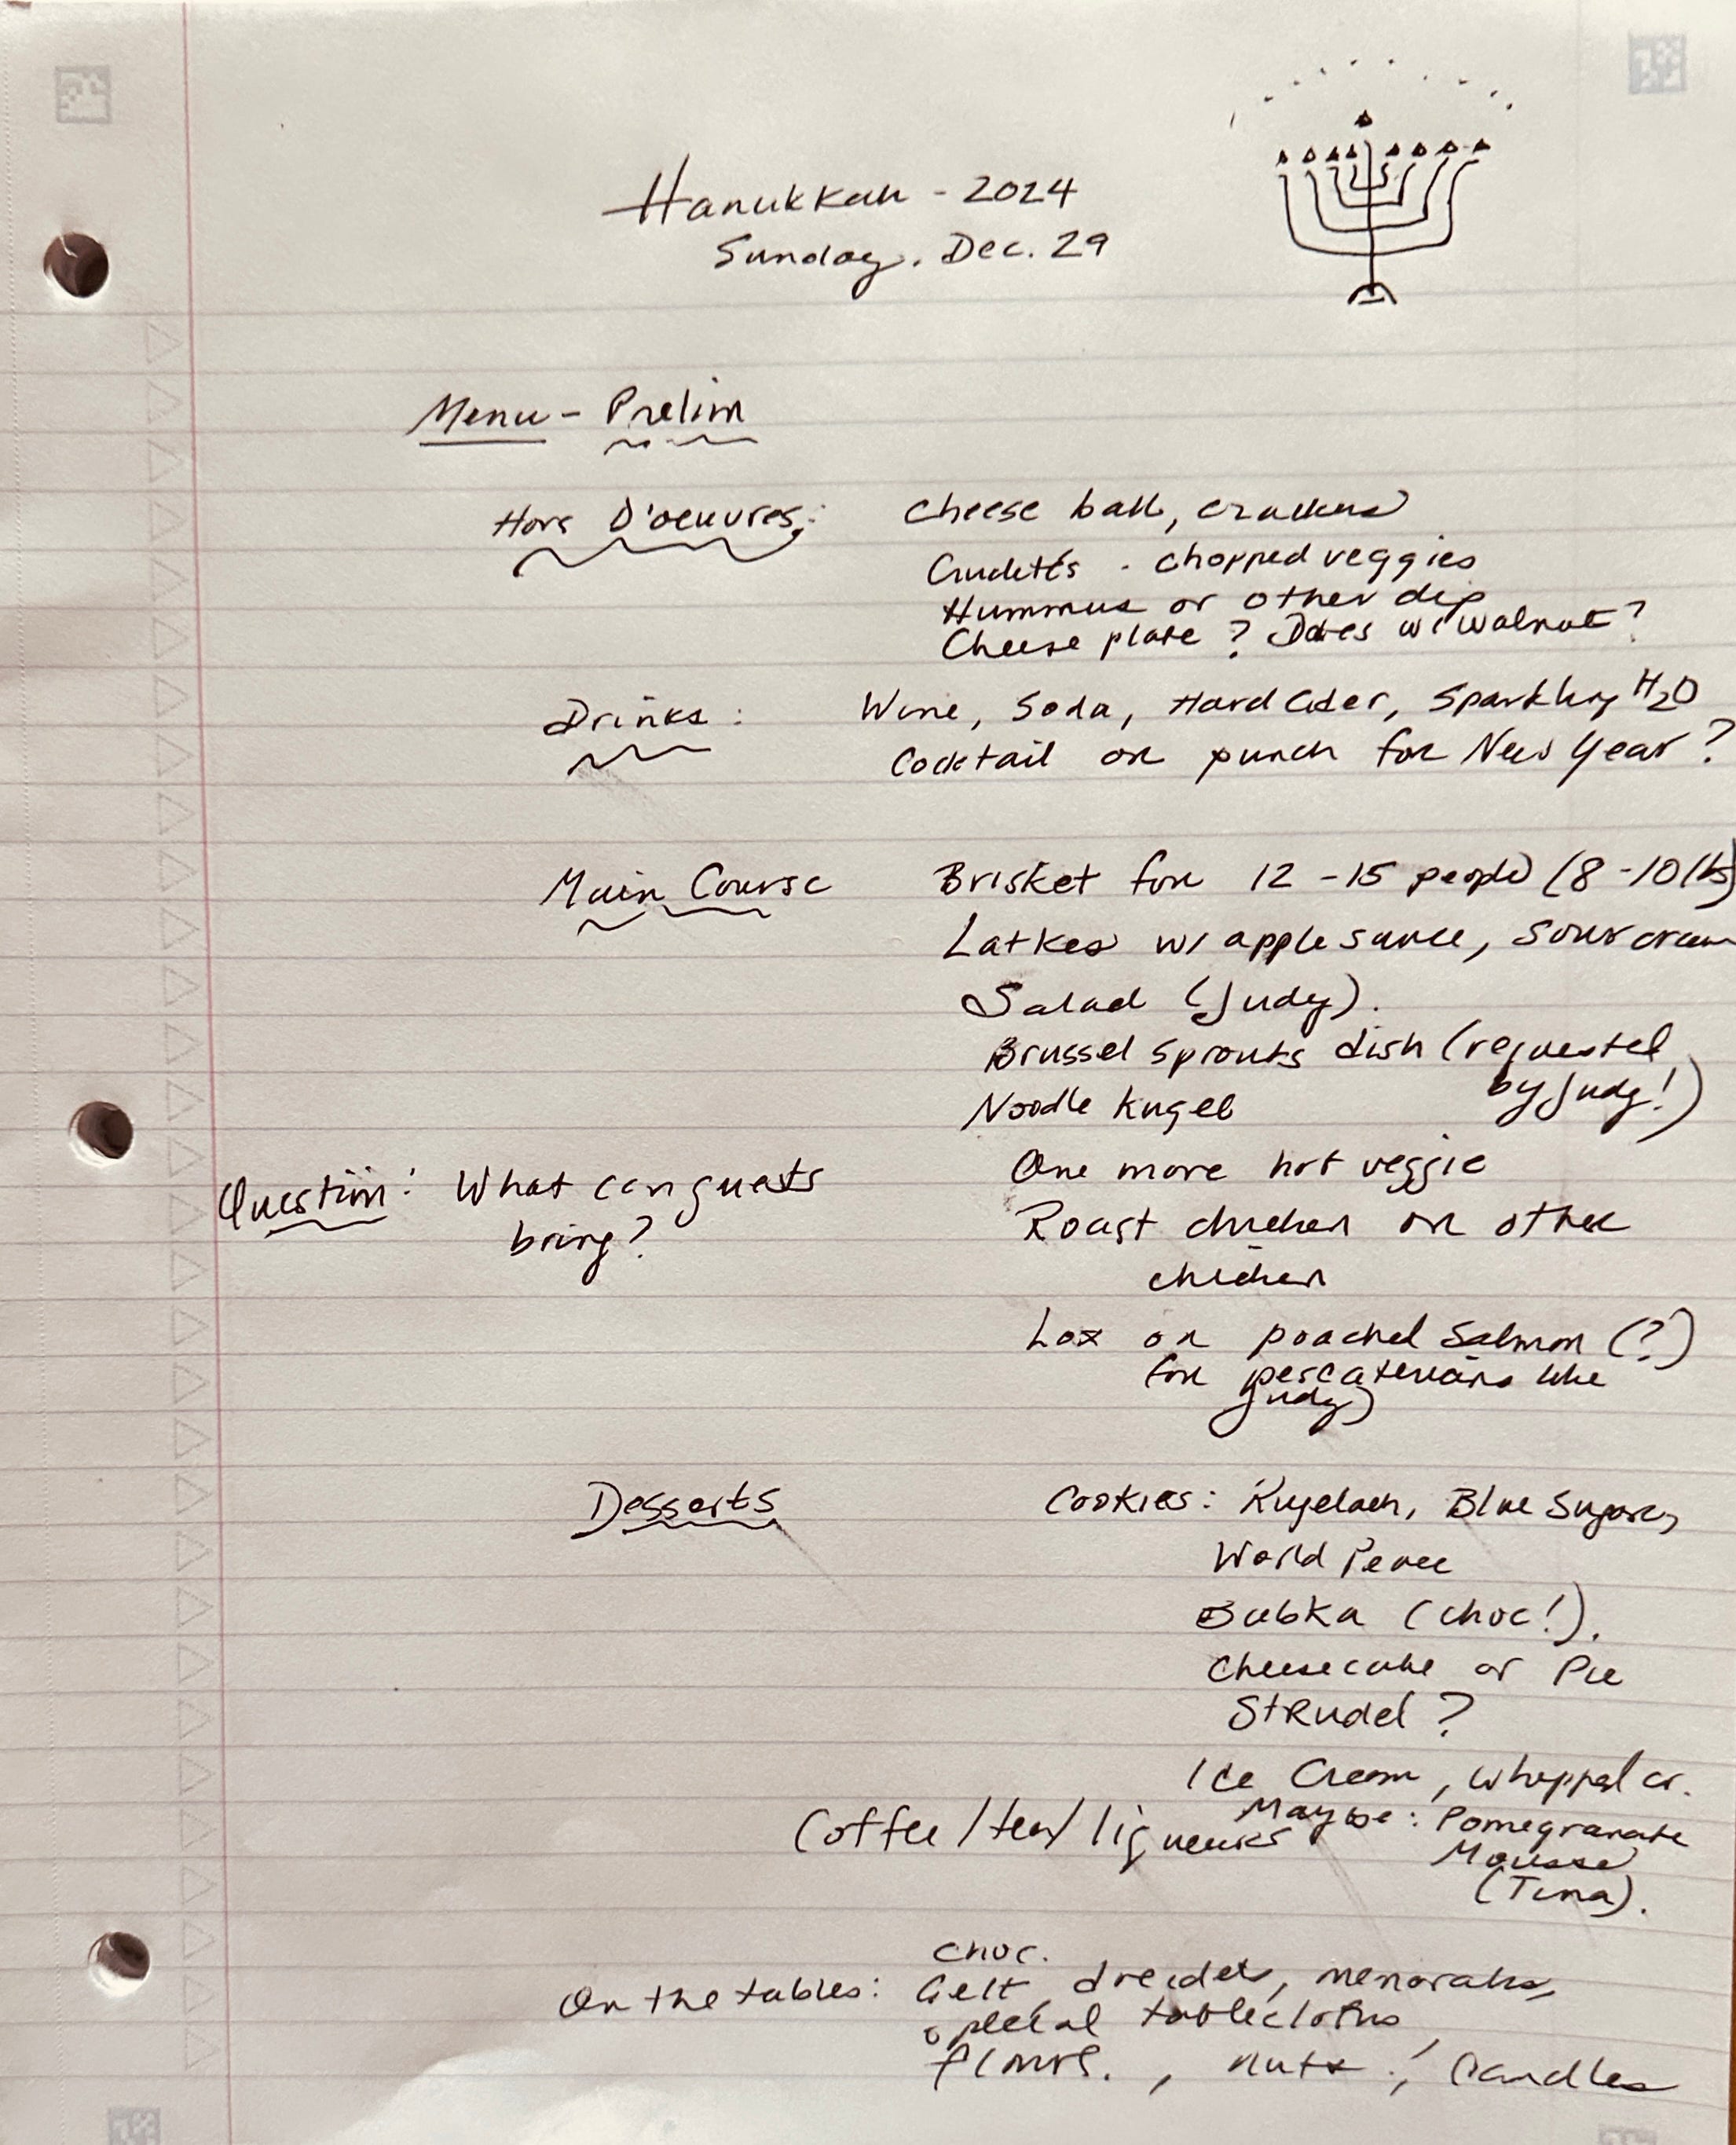 Hanukkah - 2024
Sunday, Dec. 29
Menu - Prelim
Hors D'oeuvres: Cheese ball, crackers
Crudités - chopped veggies
Hummus or other dip
Cheese plate? Dates w/ walnut?
Drinks: Wine, Soda, Hard Cider, Sparkling H2O
Cocktail or punch for New Year?
Main Course Brisket for 12-15 people (8-10 lbs)
Latkes w/ applesauce, Sour cream
Salad (Judy).
Brussel sprouts dish (requested
by Judy!)
Noodle Kugel
One more hot veggie
Question: What can guests
bring?
Roast chicken or other
chicken
Lox or poached Salmon (?)
for pescaterians like
Judy)
Desserts Cookies: Rugelach, Blue Sugars,
World Peace
Babka (choc!).
Cheesecake or Pie
Strudel?
Ice Cream, whipped cr.
Coffee/tea/liqueurs
Maybe: Pomegranate
Mousse
(Tina).
On the tables: choc.
Gelt, dreidels, menorahs,
special tablecloths,
flowrs., nuts, candles